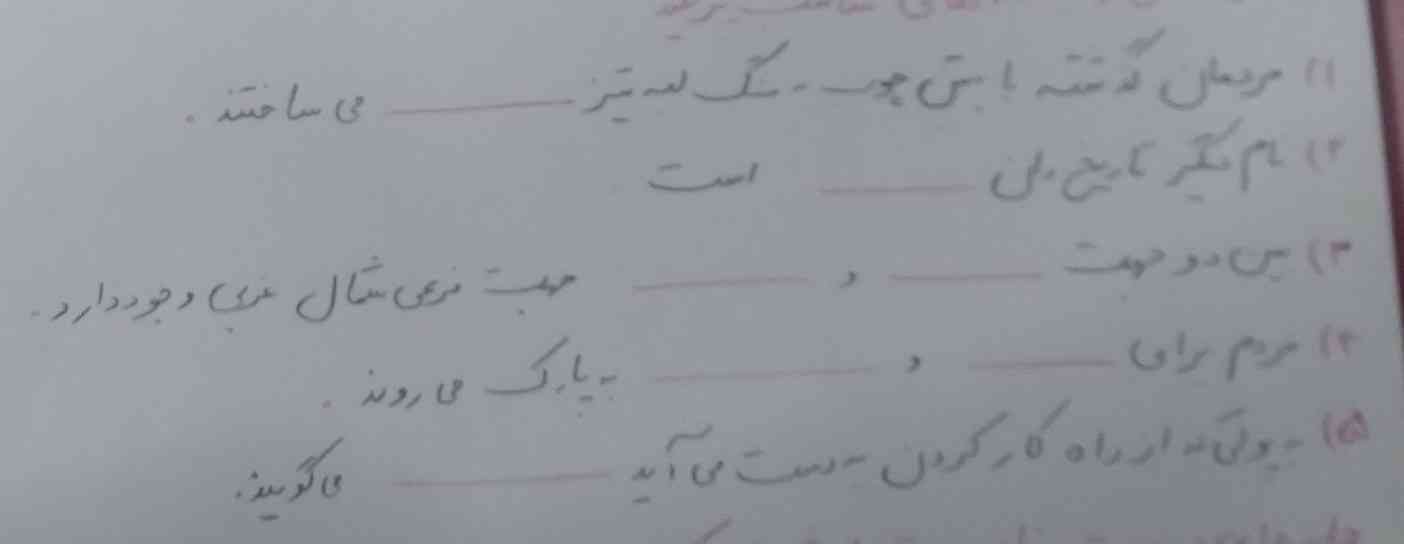 ۱) مردمان گذشته با بستن چوب به سنگ لبه تیز ــــــــ می ساختند .
۲) نام دیگر تاریخ ــــــــ است
۳) بین دو جهت ــــــــ و ــــــــ جهت فرعی شمال غربی وجود دارد .
۴) مردم برای ــــــــ و ــــــــ به پارک می روند .
۵) به پولی که از راه کار کردن به دست می آید ــــــــ می گویند .